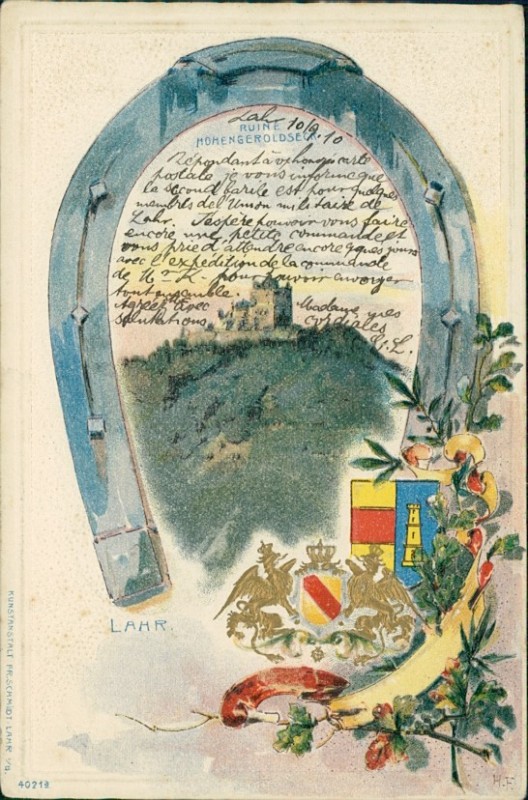 Lahr 10/9 10
RUINE
HOHENGEROLDSECK
Répondant à v/honorée carte
postale, je vous informe que
le second barile est pour quelques
membrés del'Union militaire de
Lahr. J'espère pouvoir vous faire
encore une petite commande et
vous prie d'attendre encore qques jours
avec l'expédition de la commande
de Mr K. pour pouvoir envoyer
tout ensemble.
Agréez avec Madame mes
salutations cordiales
LAHR.
KUNSTANSTALT FR. SCHMIDT LAHR i/B.
40218
H.F.